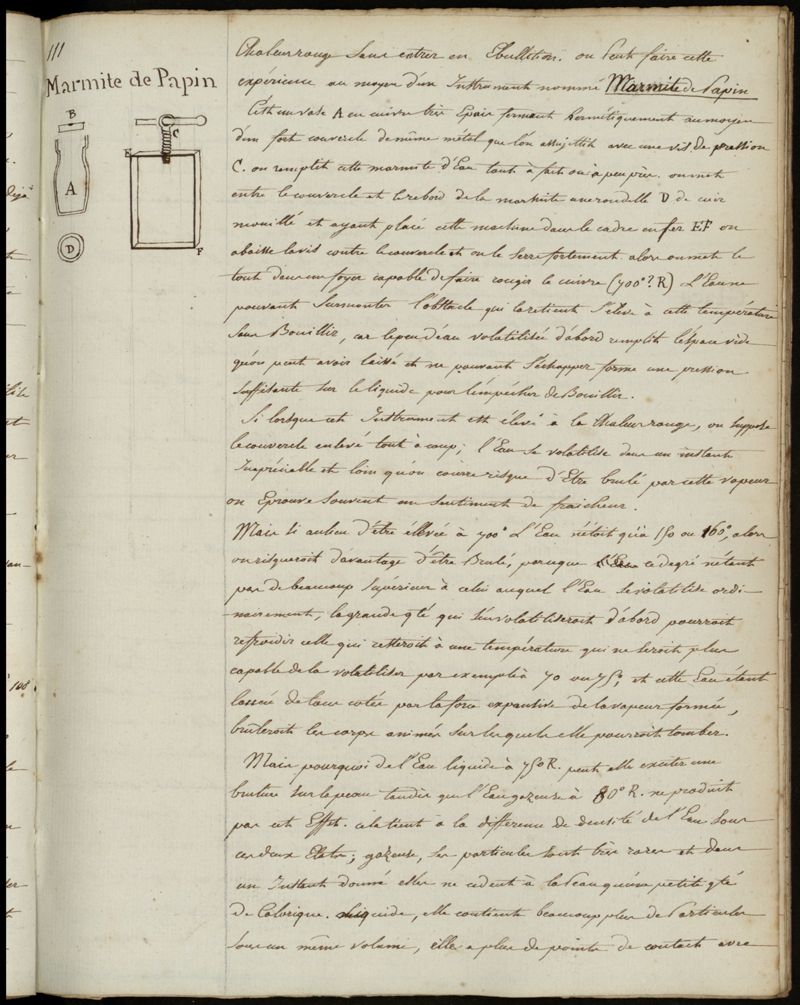 111
Marmite de Papin
B
A
D
C
E
F
Chaleur rouge sans entrer en Ebullition. on peut faire cette
expérience au moyen d'un Instrument nommé Marmite de Papin
C'est un vase A en cuivre très épais fermant hermétiquement au moyen
d'un fort couvercle de même métal que l'on assujettit avec une vis de pression
C. on remplit cette marmite d'Eau tout à fait ou à peu près. on met
entre le couvercle et le rebord de la marmite une rondelle D de cuir
mouillé et ayant placé cette machine dans le cadre en fer EF on
abaisse la vis contre le couvercle et on le serre fortement alors on met le
tout dans un foyer capable de faire rougir le cuivre (700°? R) L'Eau ne
pouvant surmonter l'obstacle qui la retient s'élève à cette température
sans Bouillir, car le peu d'eau volatilisée d'abord remplit l'espace vide
qu'on peut avoir laissé et ne pouvant s'échapper forme une pression
suffisante sur le liquide pour l'empêcher de Bouillir.
Si lorsque cet Instrument est élevé à la Chaleur rouge, on suppose
le couvercle enlevé tout à coup; l'Eau se volatilise dans un instant
Inapréciable et loin qu'on courre risque d'Etre brulé par cette vapeur
on Eprouve souvent un sentiment de fraicheur.
Mais si au lieu d'être élevée à 700° L'Eau n'étoit qu'à 150 ou 160°, alors
on risqueroit davantage d'être Brulé, parceque ce degré n'étant
pas de beaucoup supérieur à celui auquel l'Eau se volatilise ordi-
nairement, la grande qté qui s'en volatiliseroit d'abord pourroit
refroidir celle qui resteroit à une température qui ne seroit plus
capable de la volatiliser par exemple à 70 ou 75°, et cette Eau étant
lancée de tous cotés par la force expansive de la vapeur formée,
bruleroit les corps animés sur lesquels elle pourroit tomber.
Mais pourquoi de l'Eau liquide à 75° R. peut elle exciter une
brulure sur la peau tandis que l'Eau gazeuse à 80° R. ne produit
pas cet Effet. cela tient à la différence de densité de l'Eau sous
ces deux Etats; gazeuse, ses particules sont très rares et dans
un Instant donné elles ne cedent à la Peau qu'une petite qté
de Calorique. liquide, elle contient beaucoup plus de Particules
sous un même volume, elle a plus de points de contact avec